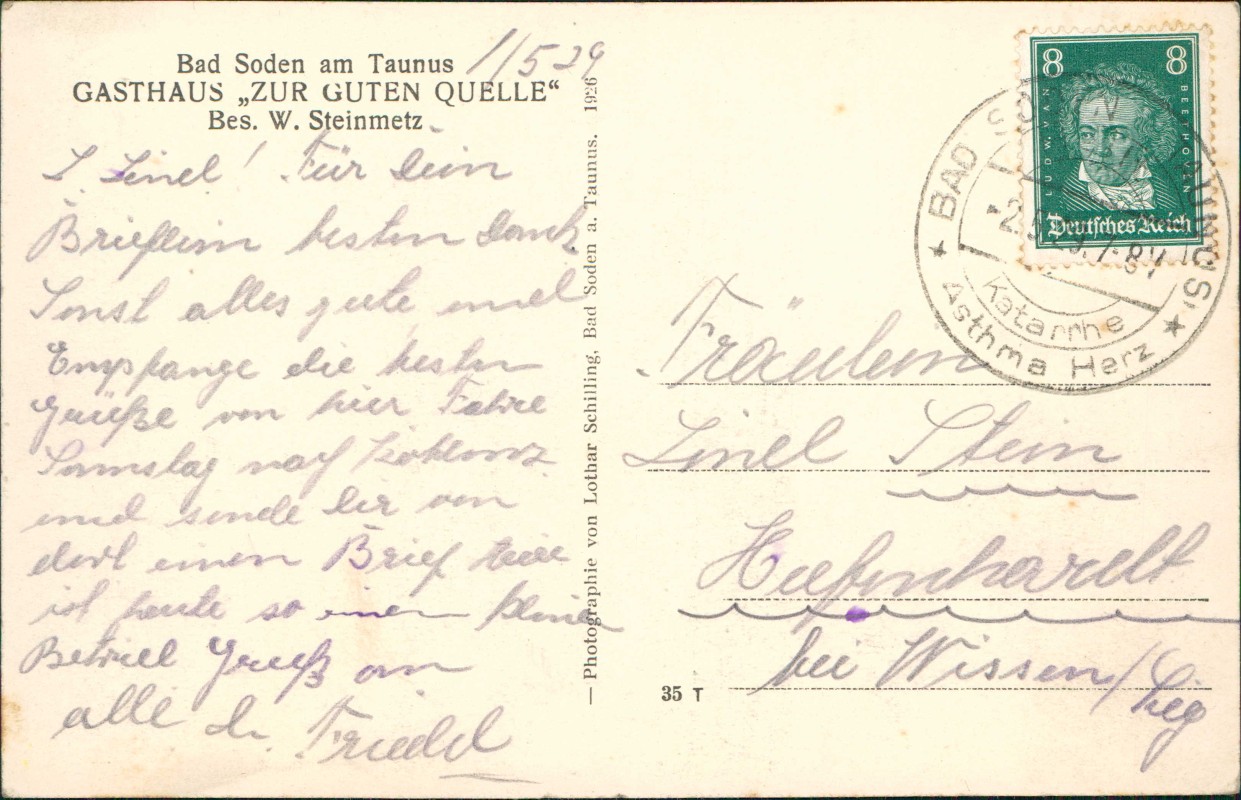 Bad Soden am Taunus
GASTHAUS „ZUR GUTEN QUELLE“
Bes. W. Steinmetz
1/5 29
L. Linel! Für dein
Brieflein besten Dank
Sonst alles gute und
Empfange die besten
Grüße von hier Fahre
Samstag nach Koblenz
und sende dir von
dort einen Brief
ist heute so einen kleinen
Betrieb Gruß an
alle d. Friedel
— Photographie von Lothar Schilling, Bad Soden a. Taunus. 1926
8 8
LUDWIG VAN BEETHOVEN
Deutsches Reich
BAD SODEN TAUNUS
-2.5.29.7-8V
Katarrhe
Asthma Herz
Fräulein
Linel Stein
bei Wissen/Sieg
35 T